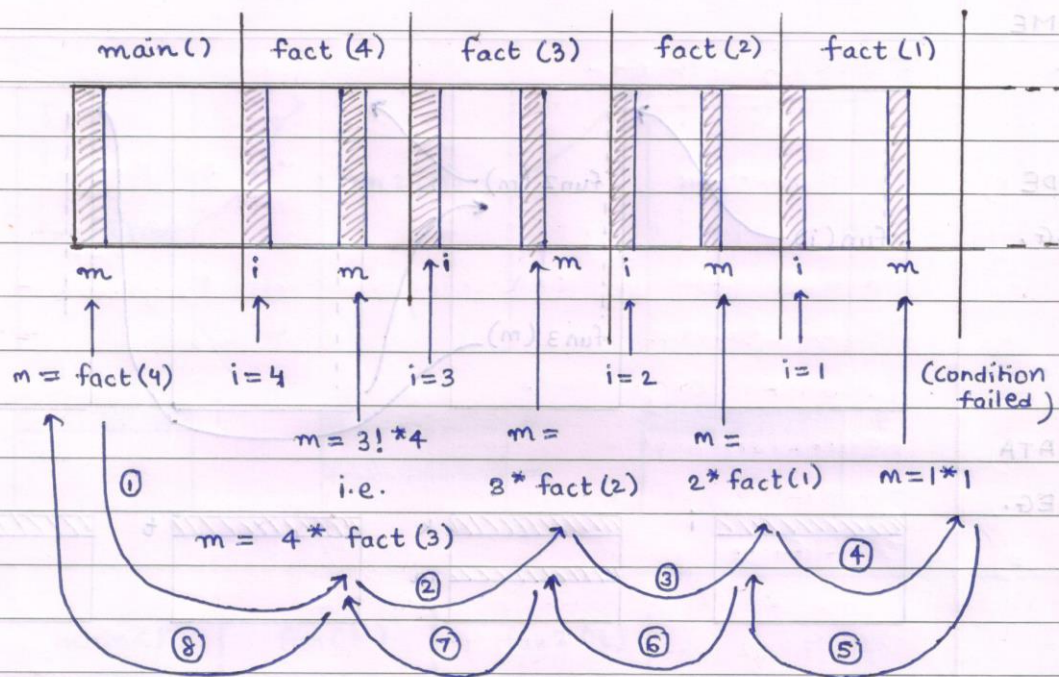 main() fact (4) fact (3) fact (2) fact (1)
m i m i m i m i m
m = fact (4) i = 4 i = 3 i = 2 i = 1 (Condition failed)
m = 3! * 4 m = m =
i.e. 3 * fact (2) 2 * fact (1) m = 1 * 1
m = 4 * fact (3)
① ② ③ ④
⑧ ⑦ ⑥ ⑤
ME
DE
fun2(m)
fun3(m)
ATA
EG.